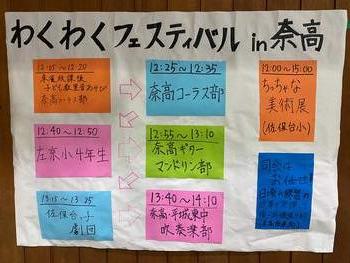 わくわくフェスティバル in 奈高
12:05～12:20
奈高コーラス部
12:25～12:35
奈高コーラス部
12:00～15:00
ちっちゃな
美術展
(佐保台小)
12:40～12:50
左京小4年生
12:55～13:10
奈高ギター
マンドリン部
13:15～13:25
佐保台っ子
劇団
13:40～14:10
奈高・平城東中
吹奏楽部
司会は
お任せ!